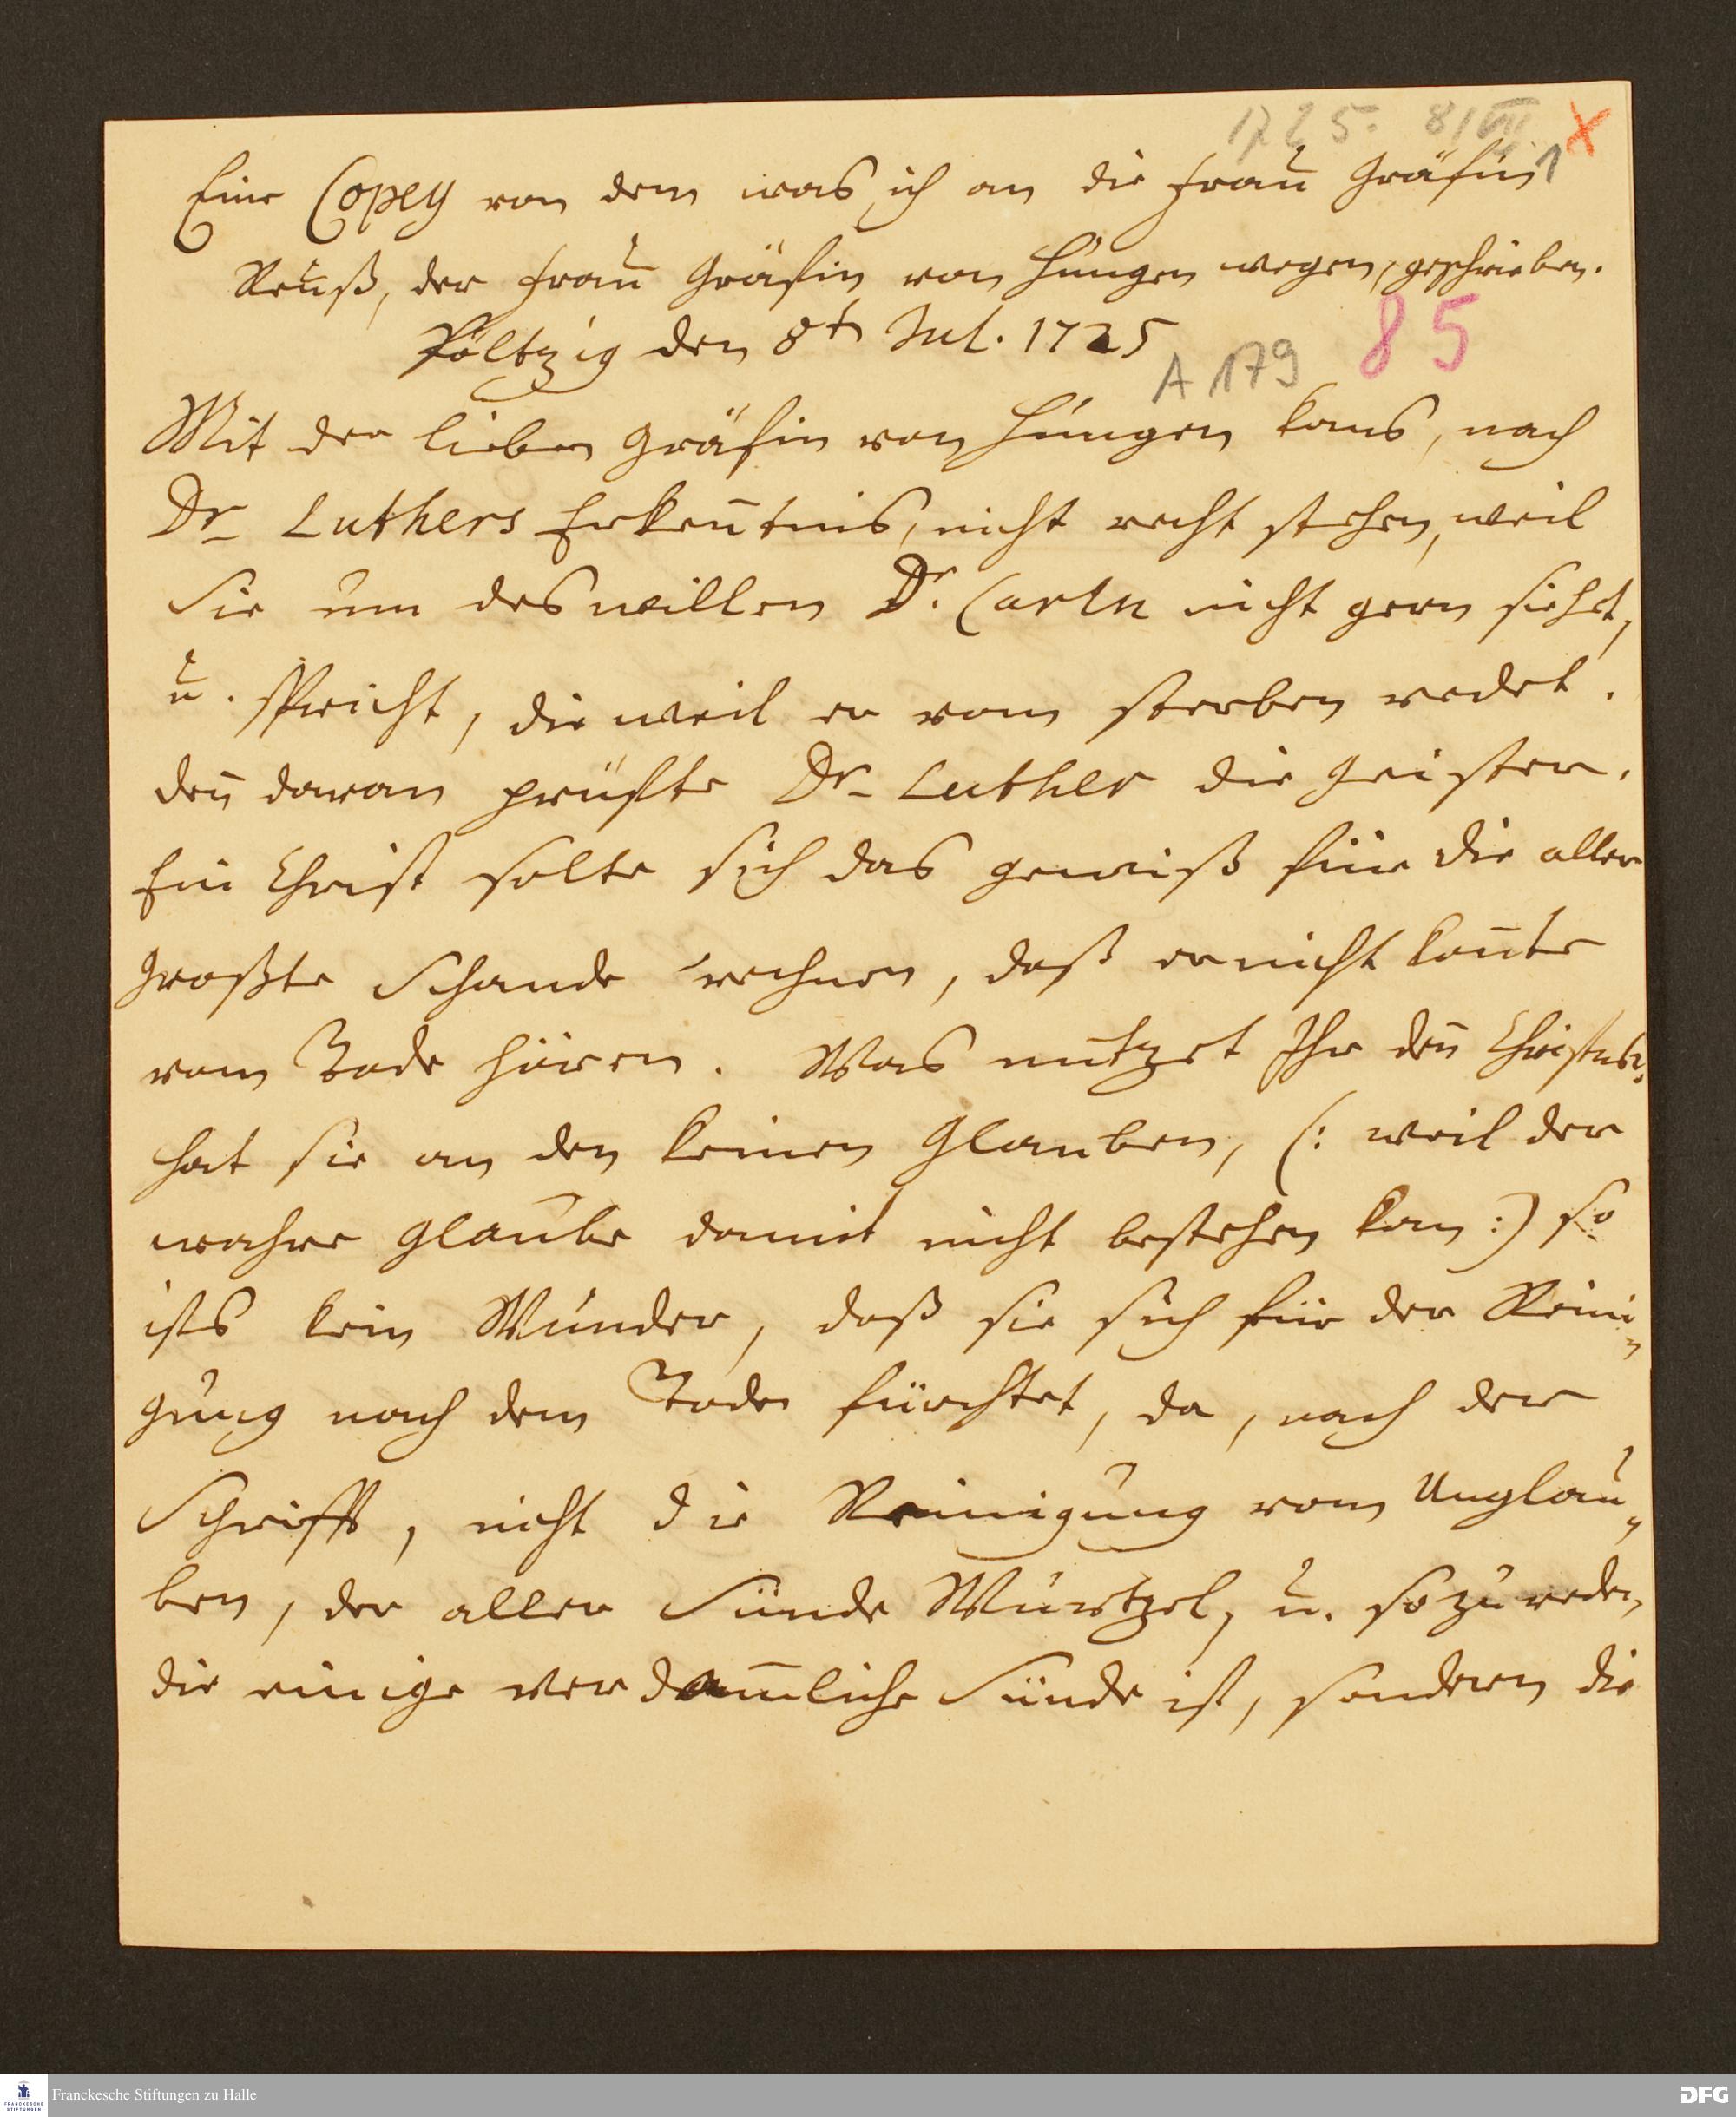 1725. 8/VII. X
Eine Copey von dem was ich an die Frau Gräfin 1
Reuß, der Frau Gräfin von Hüngen wegen, geschrieben.
Pöltzig den 8t Jul. 1725
A 179 85
Mit der lieben Gräfin von Hüngen kans, nach
Dr Luthers Erkeñtnis, nicht recht stehen, weil
Sie um deswillen Dr. Carln nicht gern siehet,
u. spricht, die weil er vom sterben redet.
deñ daran prüfte Dr Luther die Geister.
Ein Christ solte sich das gewiß für die aller
Großte Schande rechnen, daß er nicht konte
vom Tode hören. Was nutzet Ihr deñ Christus?
hat sie an den keinen Glauben, (: weil der
wahre Glaube damit nicht bestehen kan :) so
ists kein Wunder, daß sie sich für der Reini,,
gung nach dem Tode fürchtet, da, nach der
Schrifft, nicht die Reinigung vom Unglau,,
ben, der aller Sünde Wurtzel, u. so zu reden,
die einige verdam̃liche Sünde ist, sondern die
Franckesche Stiftungen zu Halle
FRANCKESCHE
STIFTUNGEN
DFG